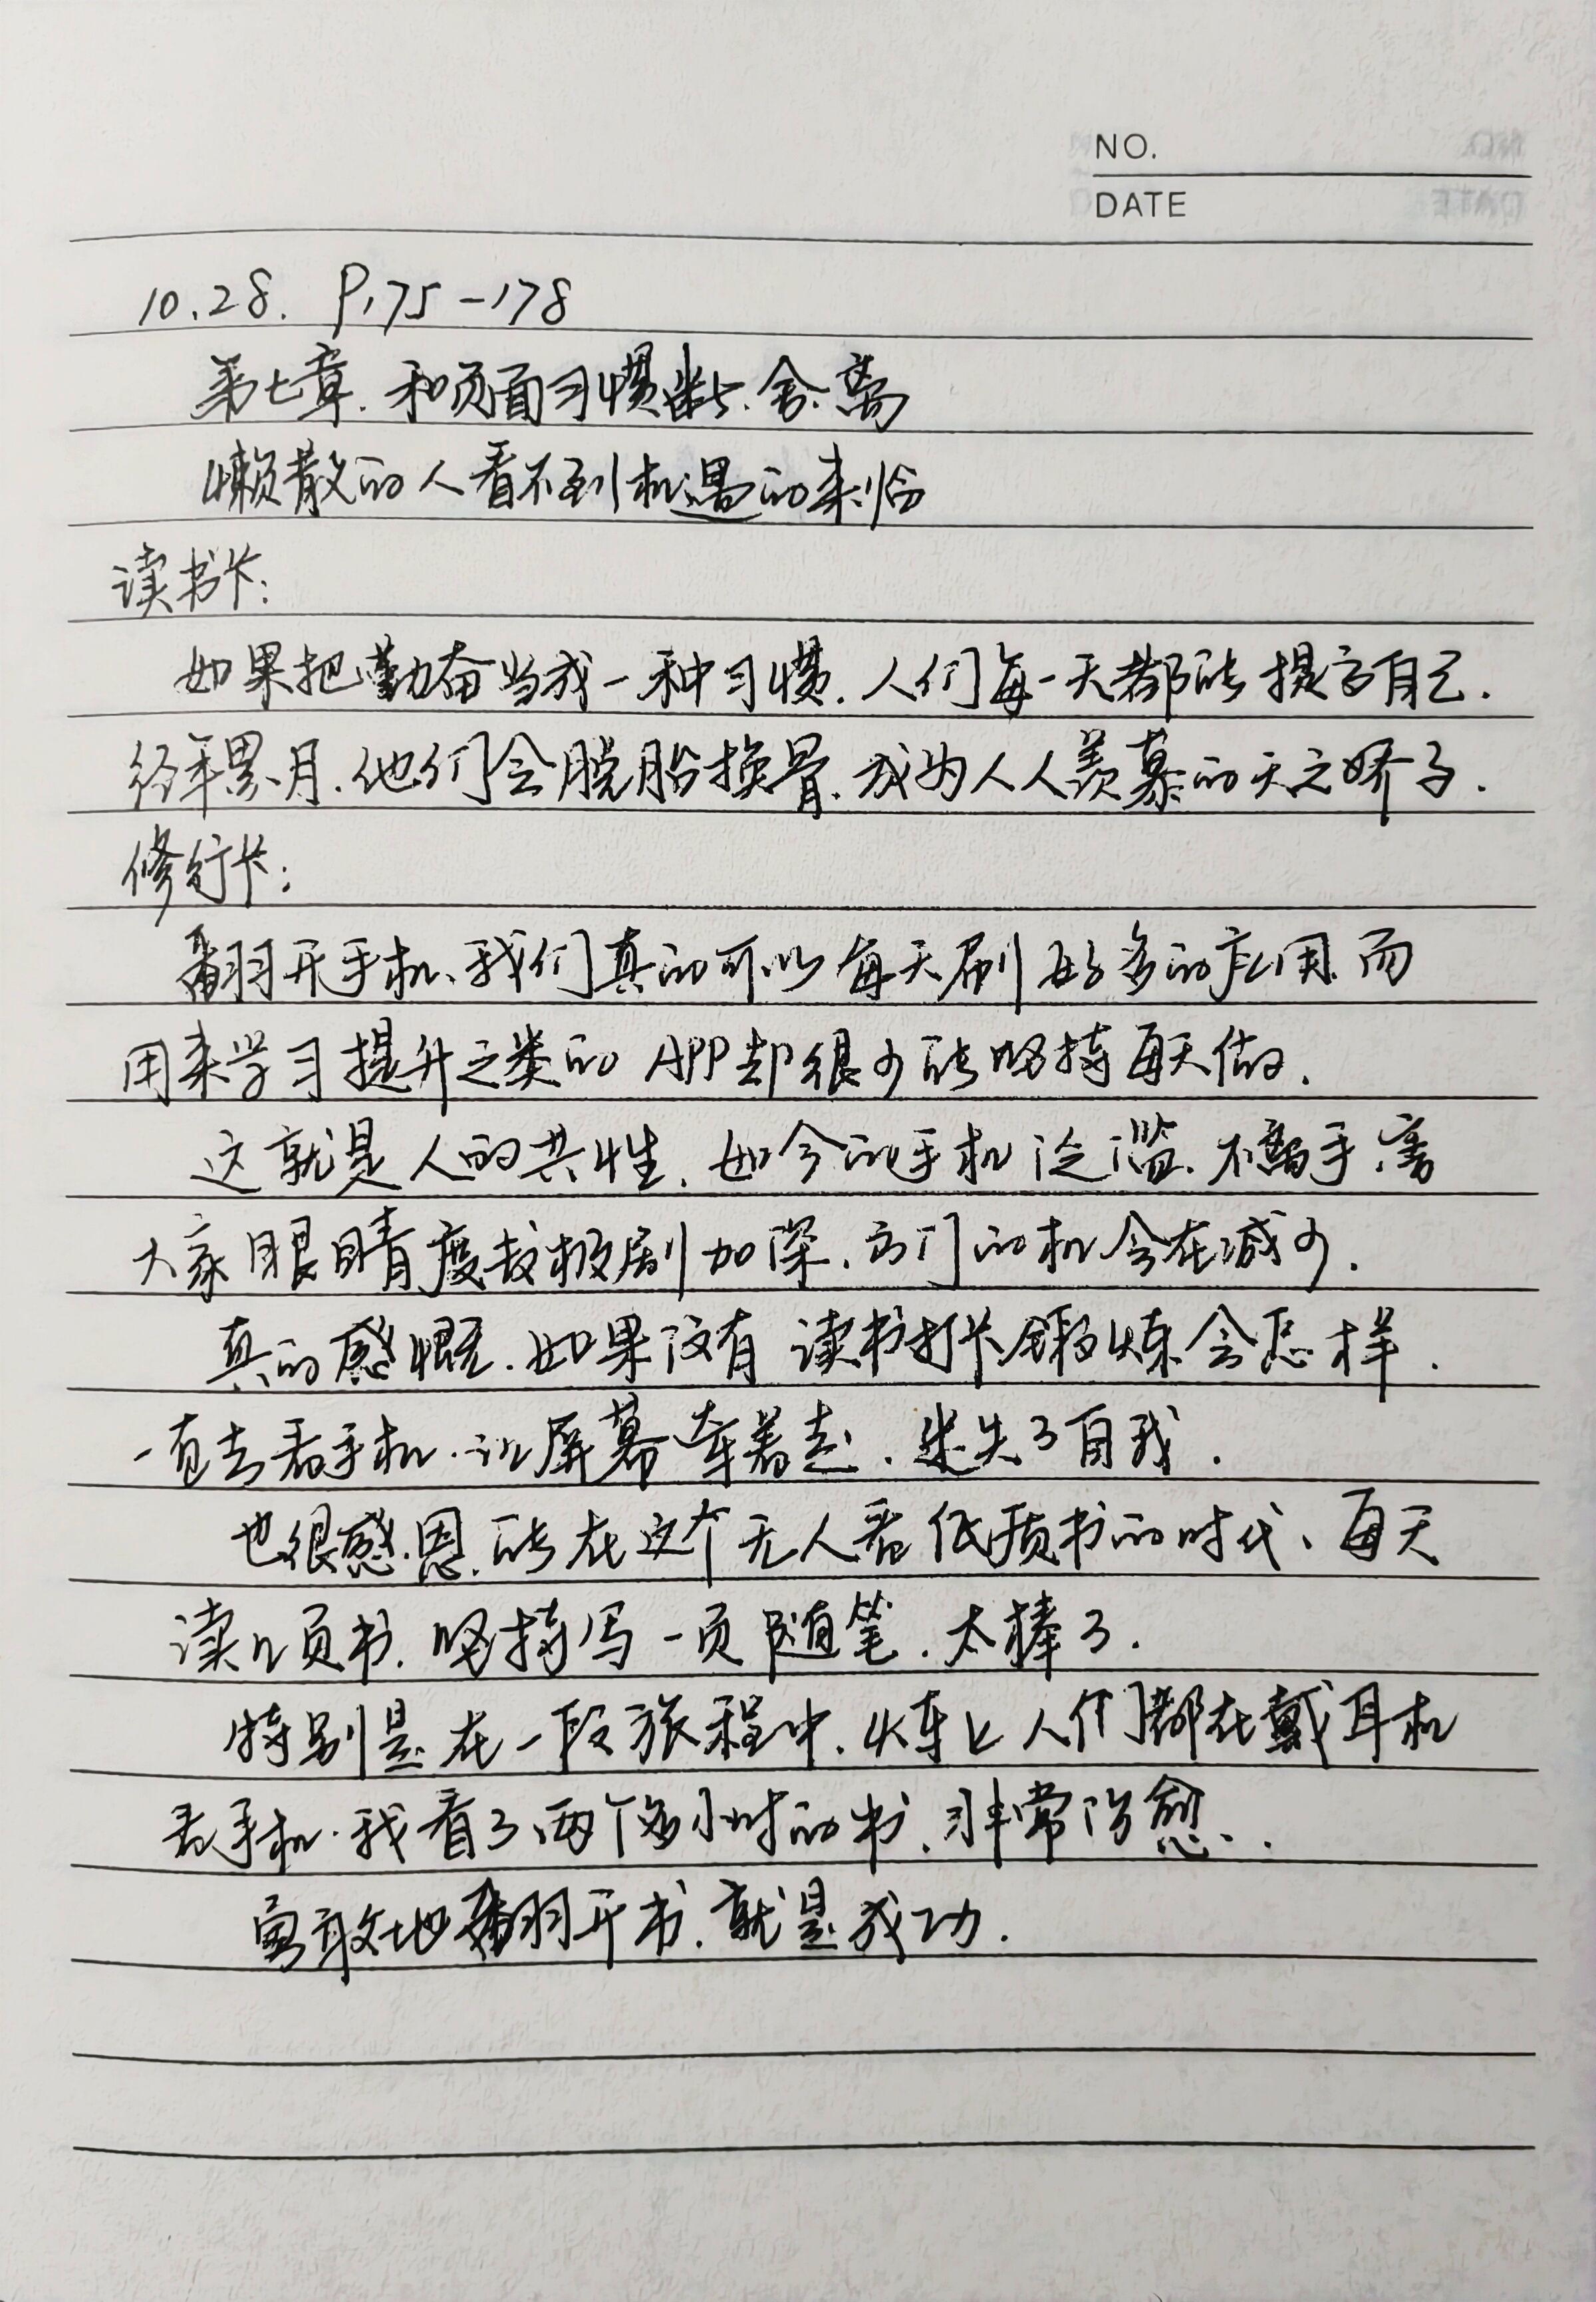 NO.
DATE
10.28. P175-178
第七章.和负面习惯断.舍.离
懒散的人看不到机遇的来临
读书卡:
如果把勤奋当成一种习惯.人们每一天都能提高自己.
经年累月.他们会脱胎换骨.成为人人羡慕的天之娇子.
修行卡:
翻开手机、我们真的可以每天刷好多的应用.而
用来学习提升之类的APP却很少能坚持每天做.
这就是人的共性.如今的手机泛滥.不离手.害
大家眼睛度数极剧加深.出门的机会在减少.
真的感慨.如果没有读书打卡锻炼会怎样.
一直去看手机.让屏幕牵着走.迷失了自我.
也很感恩.能在这个无人看纸质书的时代、每天
读几页书.坚持写一页随笔.太棒了.
特别是在一段旅程中.火车上人们都在戴耳机
看手机.我看了两个多小时的书.非常治愈..
勇敢地翻开书.就是成功.